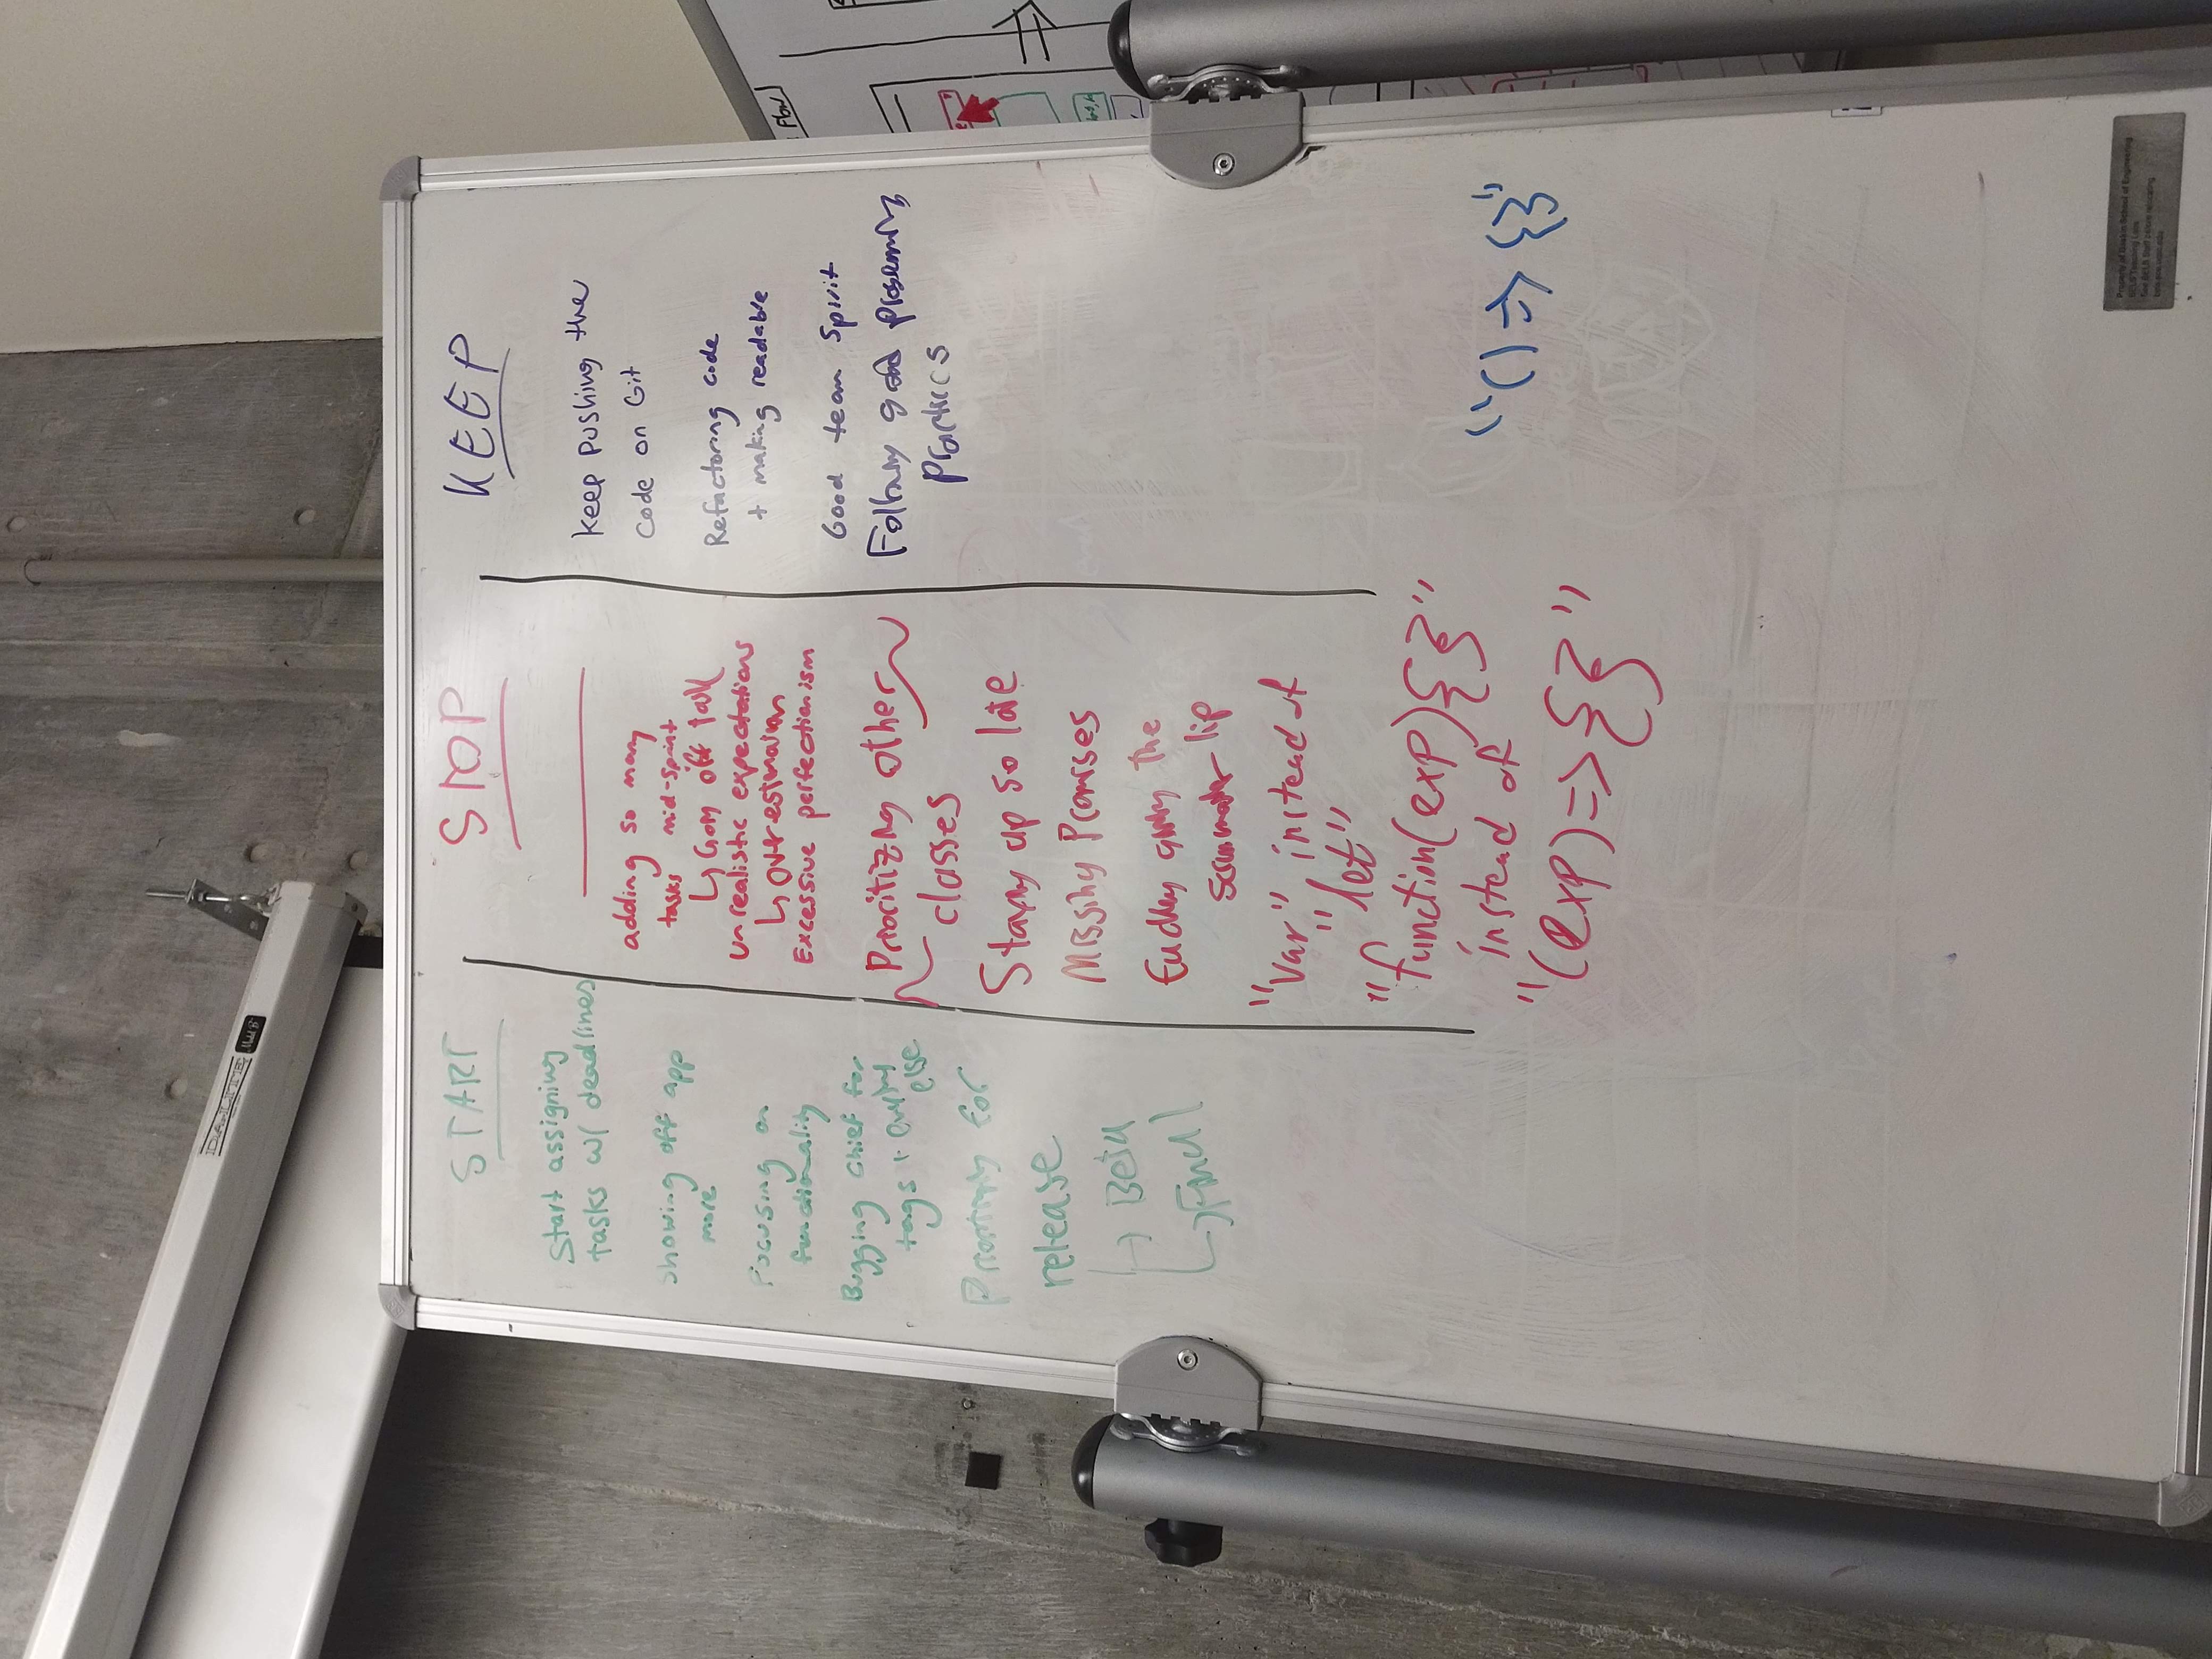 DA-LITE
Model B
START
Start assigning
tasks w/ deadlines
Showing off app
more
Focusing on
functionality
Bugging chief for
tags +
else
Prioritizing for
release
→ Beta
→ Final
STOP
adding so many
tasks mid-sprint
↳ Going off task
unrealistic expectations
↳ overestimation
Excessive perfectionism
Prioritizing other
classes
Staying up so late
Missing Promises
giving the
scrum master lip
"Var" instead of
"let"
"function(exp){}"
instead of
"(exp)=>{}"
KEEP
Keep pushing the
Code on Git
Refactoring code
+ making readable
Good team spirit
Following good programming
Practices
"() => {}"
Flow
Property of Baskin School of Engineering
BELS Teaching Labs
See BELS Staff before relocating